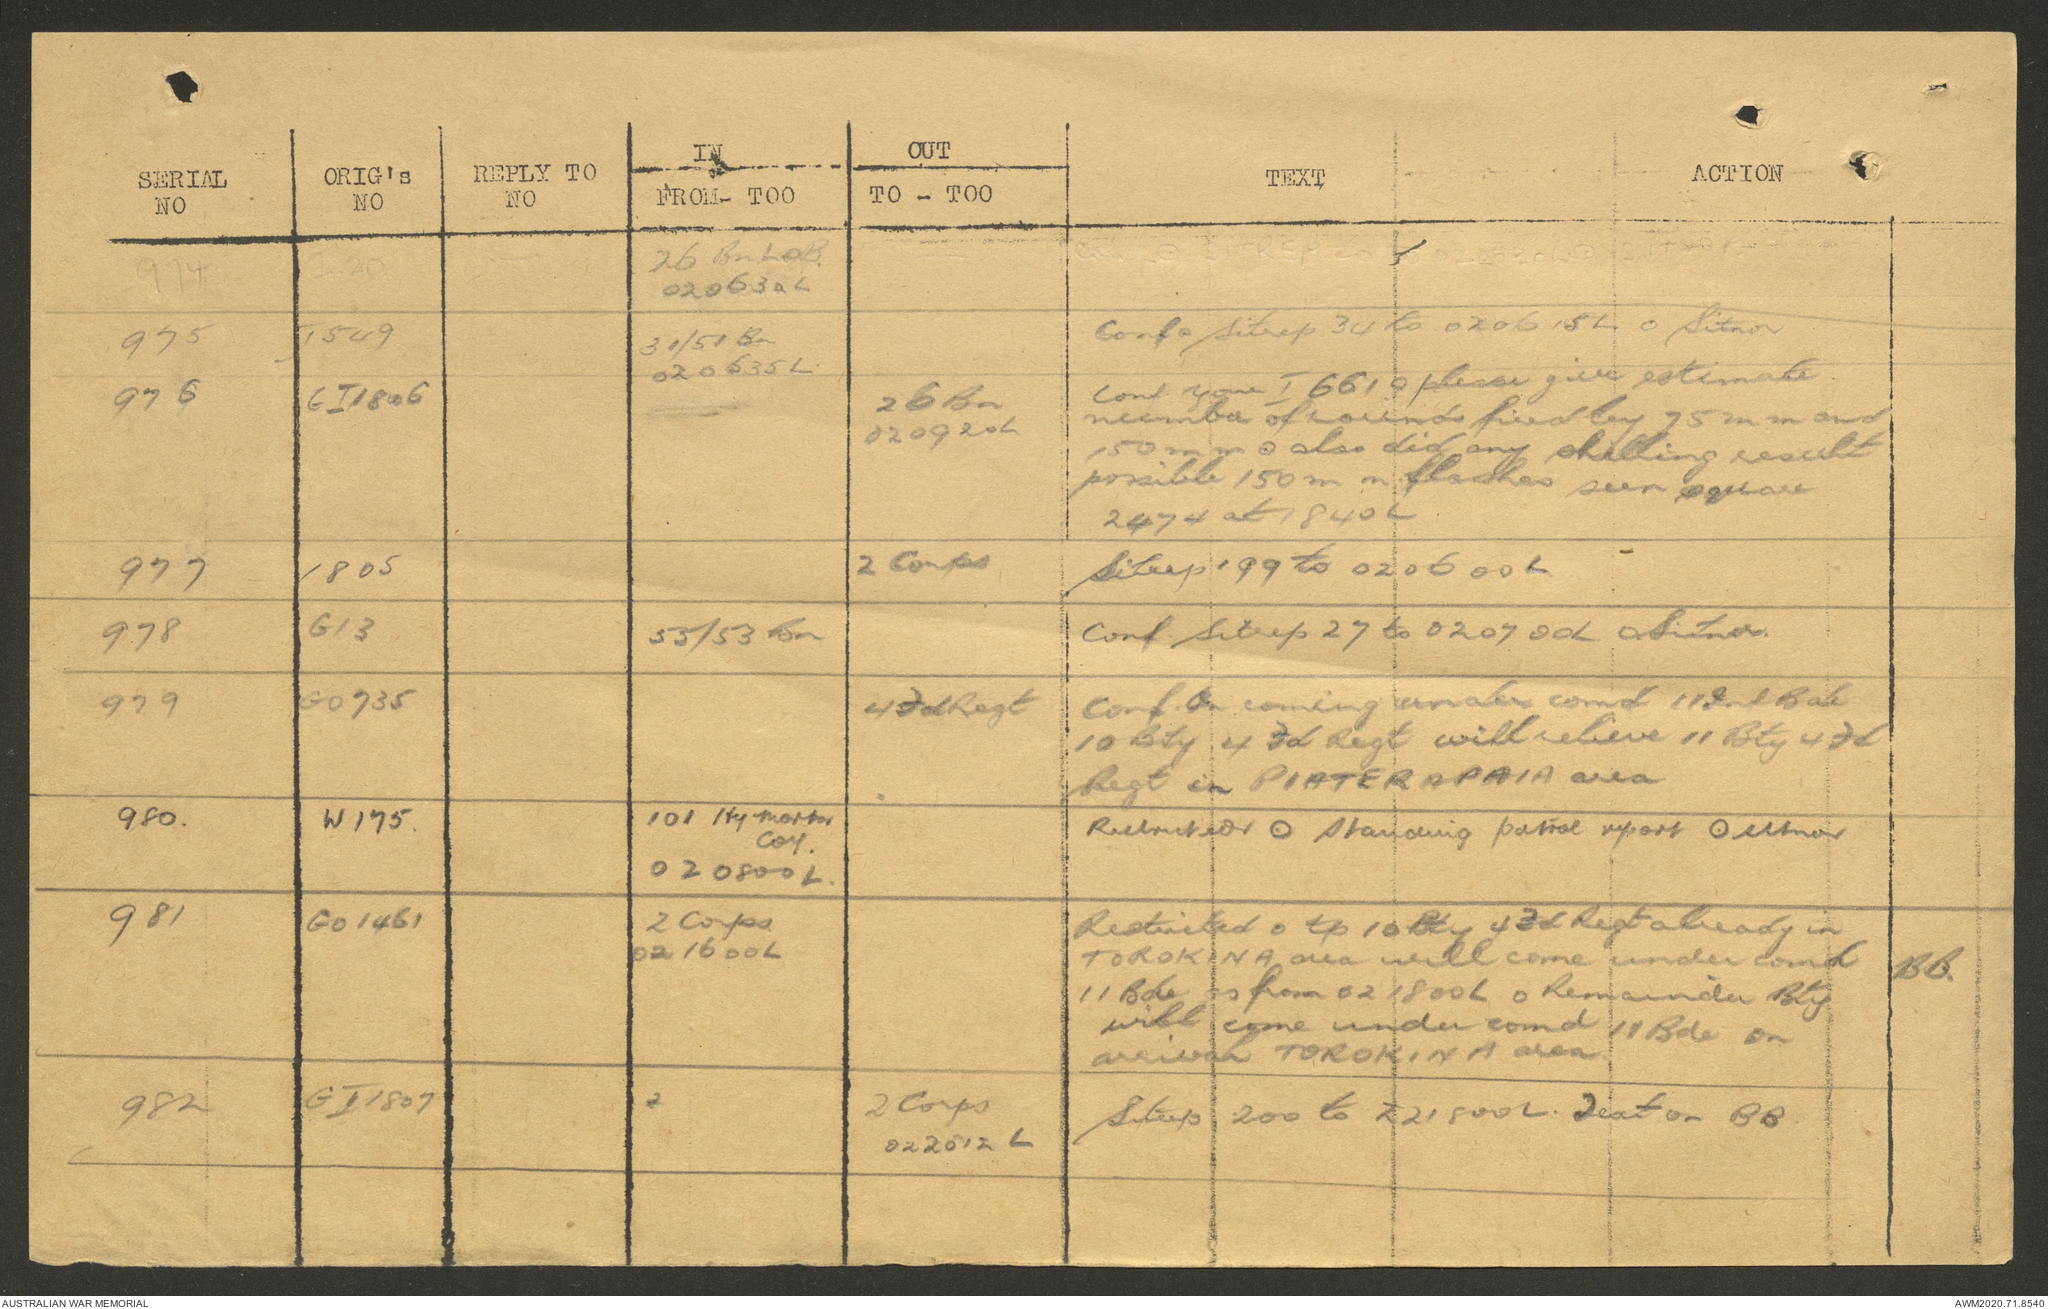 IN OUT
SERIAL NO ORIG's NO REPLY TO NO FROM- TOO TO - TOO TEXT ACTION
974 I 20 26 Bn LOB.
020630L
975 I549 31/51 Bn Conf o Sitrep 34 to 020615L o Sitnor
020635L.
976 GI1806 26 Bn Conf your I 661 o please give estimate
020920L number of rounds fired by 75 mm and
150 mm o also did any shelling result
possible 150 m m flashes seen square
2474 at 1840L
977 1805 2 Corps Sitrep 199 to 020600L
978 G13 55/53 Bn Conf Sitrep 27 to 020700L o Sitnor.
979 GO735 4 Fd Regt Conf. On coming under comd 11 Bde
10 Bty 4 Fd Regt will relieve 11 Bty 4 Fd
Regt in PIATERAPAIA area
980. W175. 101 Hy mortar Restricted O Standing patrol report O sitnor
Coy.
020800L.
981 GO1461 2 Corps Restricted o tp 10 Bty 4 Fd Regt already in
021600L TOROKINA area will come under comd BB.
11 Bde as from 021800L o Remainder Bty
will come under comd 11 Bde on
arrival TOROKINA area
982 GI1807 2 2 Corps Sitrep 200 to 221800L. Text on BB
022012L
AUSTRALIAN WAR MEMORIAL AWM2020.71.8540